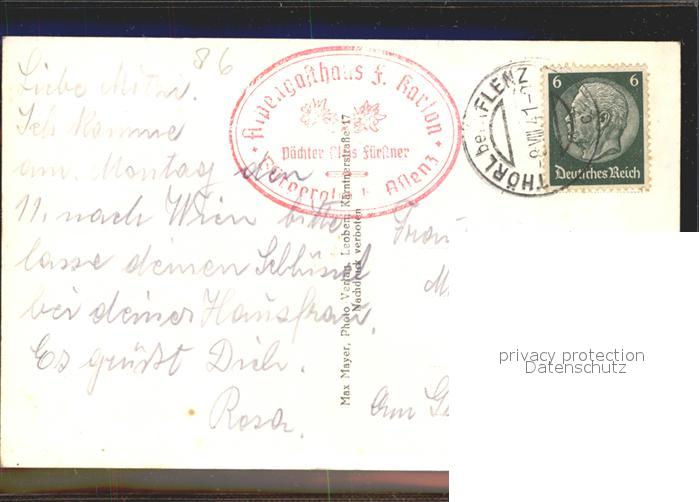 86
Liebe Mitzi.
Ich komme
am. Montag den
11. nach Wien bitte
lasse deinen Schlüssel
bei deiner Hausfrau.
Es grüßt Dich.
Rosa.
Alpengasthaus F. Karlon
Pächter Fürstner
Aflenz
Max Mayer, Photo Verlag, Leoben, Kärntnerstraße 17
Nachdruck verboten
THÖRL bei AFLENZ
6 6
Deutsches Reich
Frau
M
Am Ge
privacy protection
Datenschutz